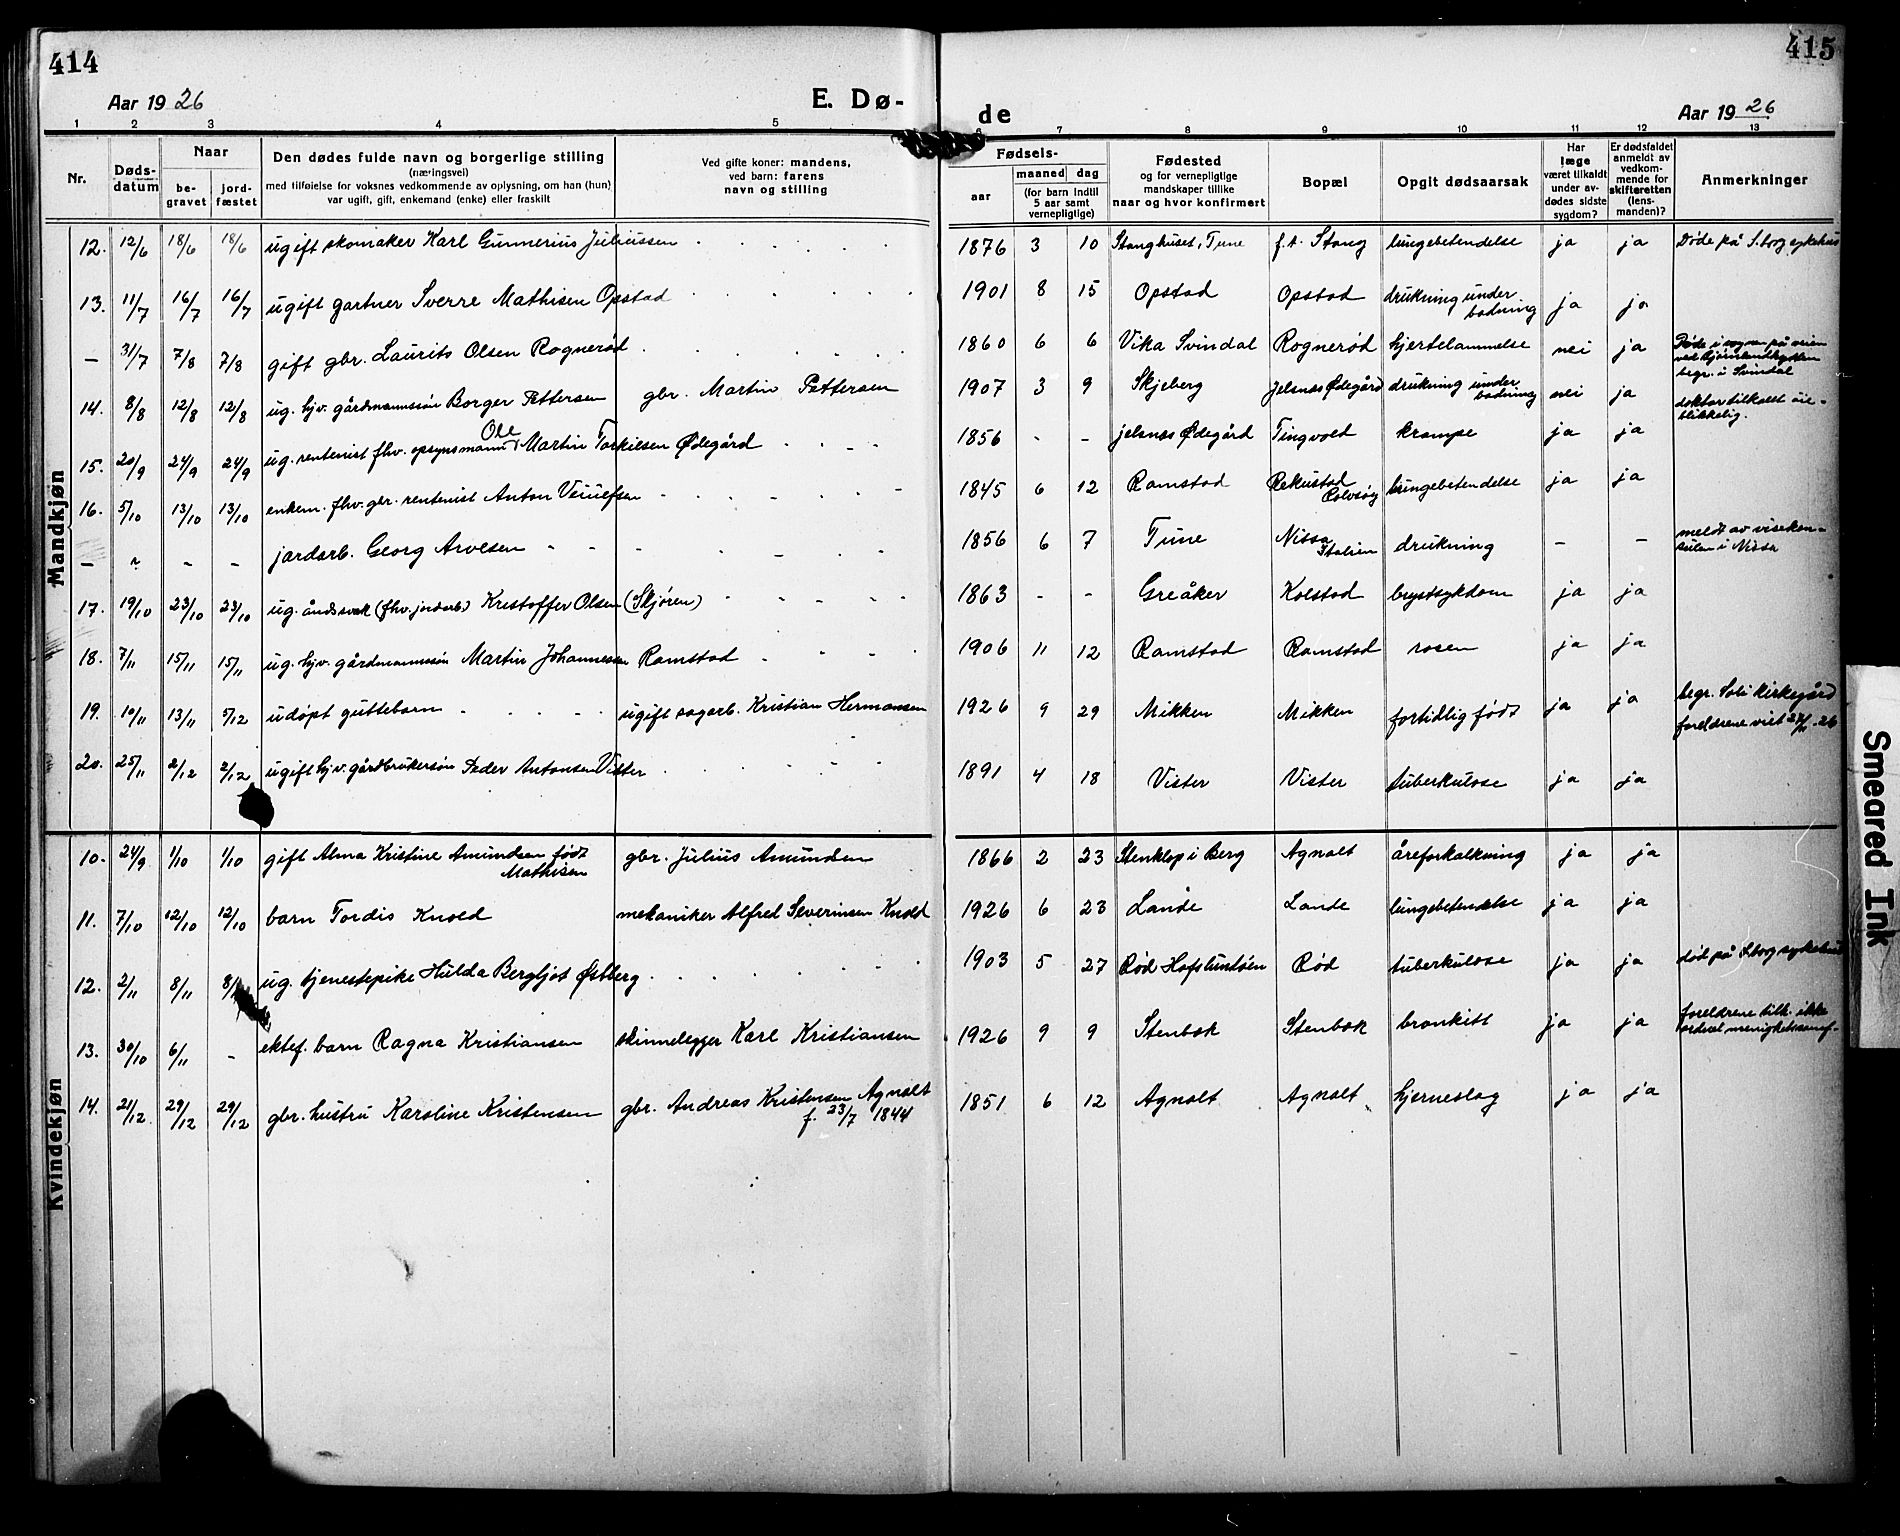 414
415
Aar 1926
E. Dø-
de
Aar 1926
1 2 3 4 5 6 7 8 9 10 11 12 13
Nr.
Døds-
datum
Naar
be-
gravet
jord-
fæstet
Den dødes fulde navn og borgerlige stilling
(næringsvei)
med tilføielse for voksnes vedkommende av oplysning, om han (hun)
var ugift, gift, enkemand (enke) eller fraskilt
Ved gifte koner: mandens,
ved barn: farens
navn og stilling
Fødsels-
aar
maaned dag
(for barn indtil
5 aar samt
vernepligtige)
Fødested
og for vernepligtige
mandskaper tillike
naar og hvor konfirmert
Bopæl
Opgit dødsaarsak
Har
læge
været tilkaldt
under av-
dødes sidste
sygdom?
Er dødsfaldet
anmeldt av
vedkom-
mende for
skifteretten
(lens-
manden)?
Anmerkninger
Mandkjøn
12. 12/6 18/6 18/6 ugift skomaker Karl Gunnerius Juliussen 1876 3 10 Stanghuset, Tune f.t. Stang lungebetendelse ja ja Døde på S.borg sykehus
13. 11/7 16/7 16/7 ugift gartner Sverre Mathisen Opstad 1901 8 15 Opstad Opstad drukning under badning ja ja
— 31/7 7/8 7/8 gift gbr. Laurits Olsen Rognerød 1860 6 6 Vika Svindal Rognerød hjertelammelse nei ja Døde i sognet på veien
begr. i Svindal
14. 8/8 12/8 12/8 ug. hjv. gårdmannssøn Borger Pettersen gbr. Martin Pettersen 1907 3 9 Skjeberg Jelsnes Ødegård drukning under badning nei ja doktor tilkalt øie-
blikkelig.
15. 20/9 24/9 24/9 ug. rentenist fhv. opsynsmann Ole Martin Torkilsen Ødegård 1856 - - jelsnes Ødegård Tingvold krampe ja ja
16. 5/10 13/10 13/10 enkem. fhv. gbr. rentenist Anton 1845 6 12 Ramstad Rekustad Rolvsøy lungebetendelse ja ja
— " - - jordarb. Georg Arvesen 1856 6 7 Tune Nissa Italien drukning - - meldt av visekon-
sulen i Nissa
17. 19/10 23/10 23/10 ug. åndssvak (fhv. jordarb.) Kristoffer Olsen (Skjøren) 1863 - - Greåker Kolstad brystsykdom ja ja
18. 7/11 15/11 15/11 ug. hjv. gårdmannssøn Martin Johannessen Ramstad 1906 11 12 Ramstad Ramstad rosen ja ja
19. 10/11 13/11 5/12 udøpt guttebarn ugift sagarb. Kristian Hermansen 1926 9 29 Mikken Mikken fortidlig født ja ja begr. Soli kirkegård
foreldrene viet 27/11-26
20. 25/11 2/12 2/12 ugift hjv. gårdbrukersøn Peder Antonsen Vister 1891 4 18 Vister Vister tuberkulose ja ja
Kvindekjøn
10. 24/9 1/10 1/10 gift Alma Kristine Amundsen født Mathisen gbr. Julius Amundsen 1866 2 23 Stenklep i Berg Agnalt åreforkalkning ja ja
11. 7/10 12/10 12/10 barn Tordis Knold mekaniker Alfred Severinsen Knold 1926 6 23 Lande Lande lungebetendelse ja ja
12. 2/11 8/11 8/11 ug. tjenestepike Hulda Bergljot Østberg 1903 5 27 Rød Hafslundsøen Rød tuberkulose ja ja død på S.borg sykehus
13. 30/10 6/11 - ektef. barn Ragna Kristiansen skinnelegger Karl Kristiansen 1926 9 9 Stenbek Stenbek bronkitt ja ja foreldrene tilh. ikke
14. 21/12 29/12 29/12 gbr. hustru Karoline Kristensen gbr. Andreas Kristensen Agnalt f. 23/7 1844 1851 6 12 Agnalt Agnalt hjerneslag ja ja
Smeared Ink